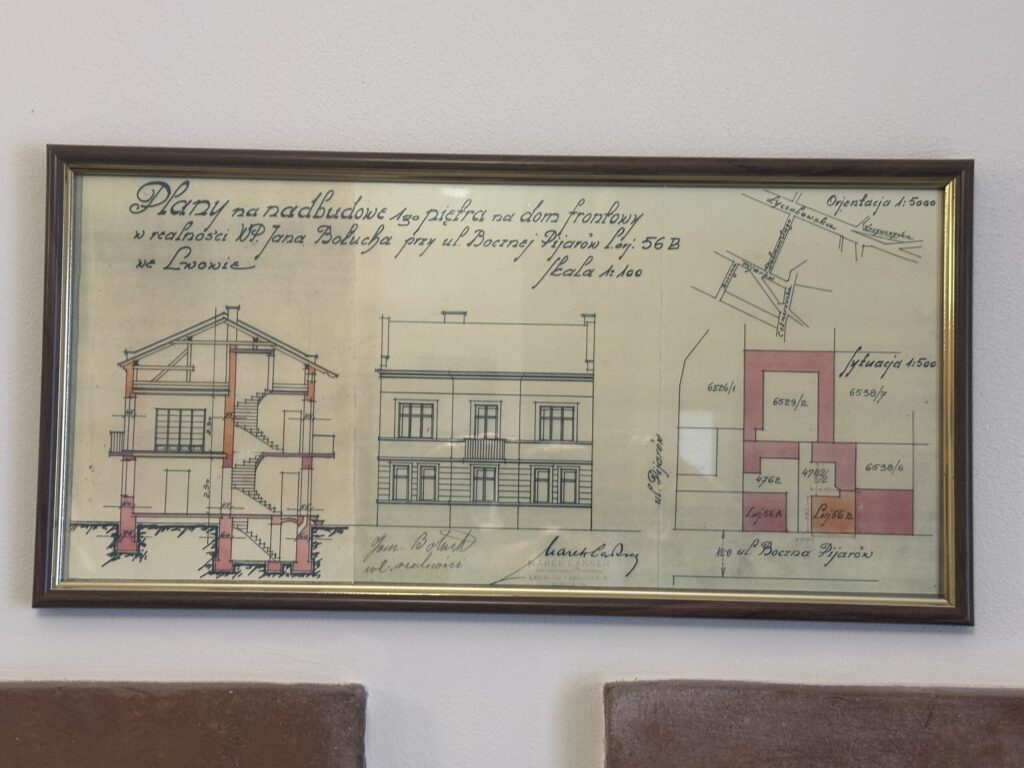 Plany na nadbudowe 1go piętra na dom frontowy
w realności WP. Jana Bołucha przy ul. Bocznej Pijarów Lorj. 56 B
we Lwowie
Skala 1:100
Orjentacja 1:5000
Łyczakowska
Sytuacja 1:500
6526/1
6529/2
6538/7
4762
4762/2
6538/6
Lorj 56A
Lorj 56 B
ul. Pijarów
ul. Boczna Pijarów
2.90
2.90
Jan Bołuch
wł. realności
MAREK LAKSER